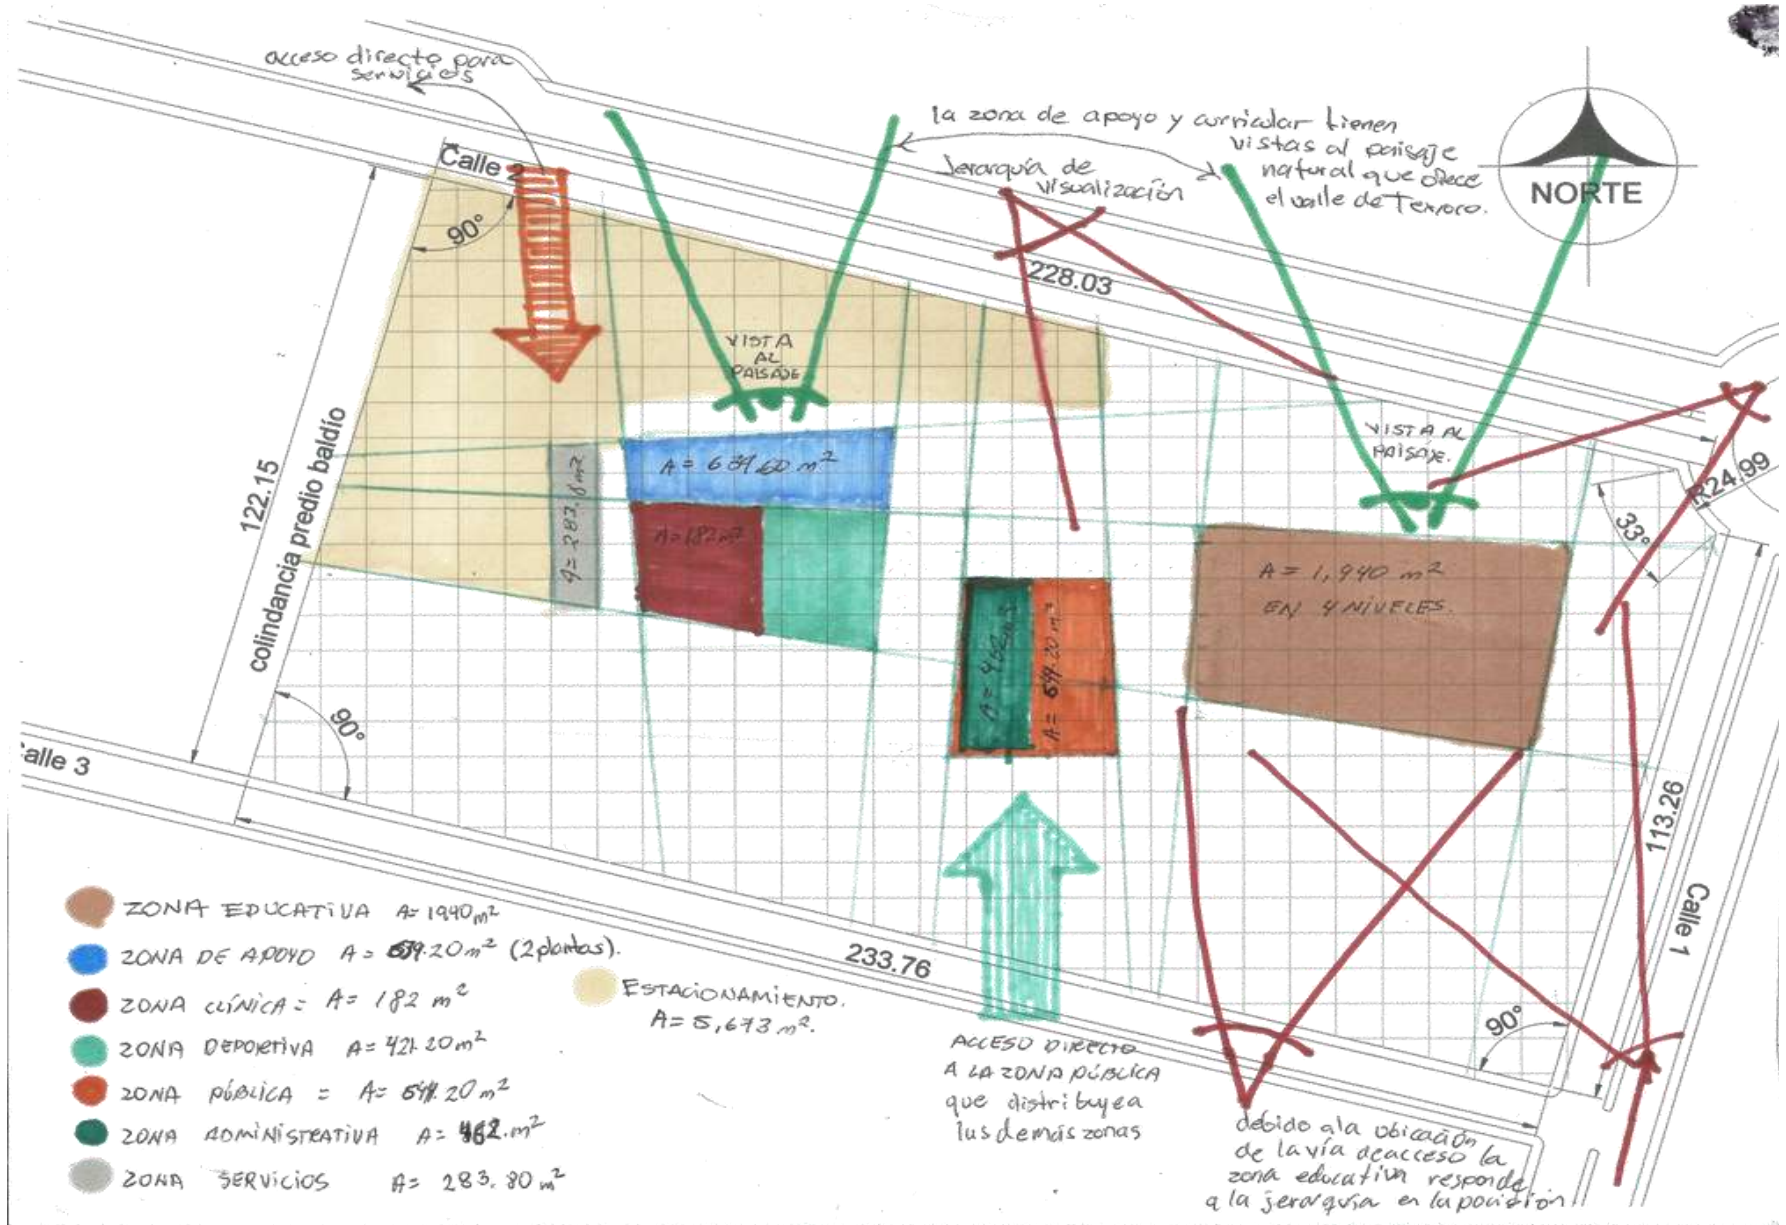 acceso directo para
servicios
la zona de apoyo y curricular tienen
vistas al paisaje
natural que ofrece
el valle de Texcoco.
Jerarquía de
visualización
NORTE
Calle 2
90°
228.03
VISTA
AL
PAISAJE
VISTA AL
PAISAJE.
R24.99
33°
122.15
colindancia predio baldío
A= 283.8 m²
A= 182 m²
A= 1,940 m²
EN 4 NIVELES.
90°
alle 3
113.26
Calle 1
233.76
90°
ZONA EDUCATIVA A= 1940 m²
ZONA DE APOYO A= 639.20 m² (2 plantas).
ZONA CLÍNICA = A= 182 m²
ZONA DEPORTIVA A= 421.20 m²
ZONA PÚBLICA = A= 544.20 m²
ZONA ADMINISTRATIVA A= 462. m²
ZONA SERVICIOS A= 283.80 m²
ESTACIONAMIENTO.
A= 5,673 m².
ACCESO DIRECTO
A LA ZONA PÚBLICA
que distribuye a
las demás zonas
debido a la ubicación
de la vía de acceso la
zona educativa responde
a la jerarquía en la posición